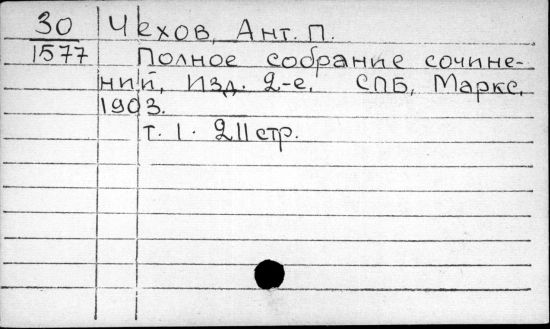 30 Чехов, Ант. П.
1577 Полное собрание сочине-
ний, Изд. 2-е. СПБ, Маркс,
1903.
т. 1. 211 стр.